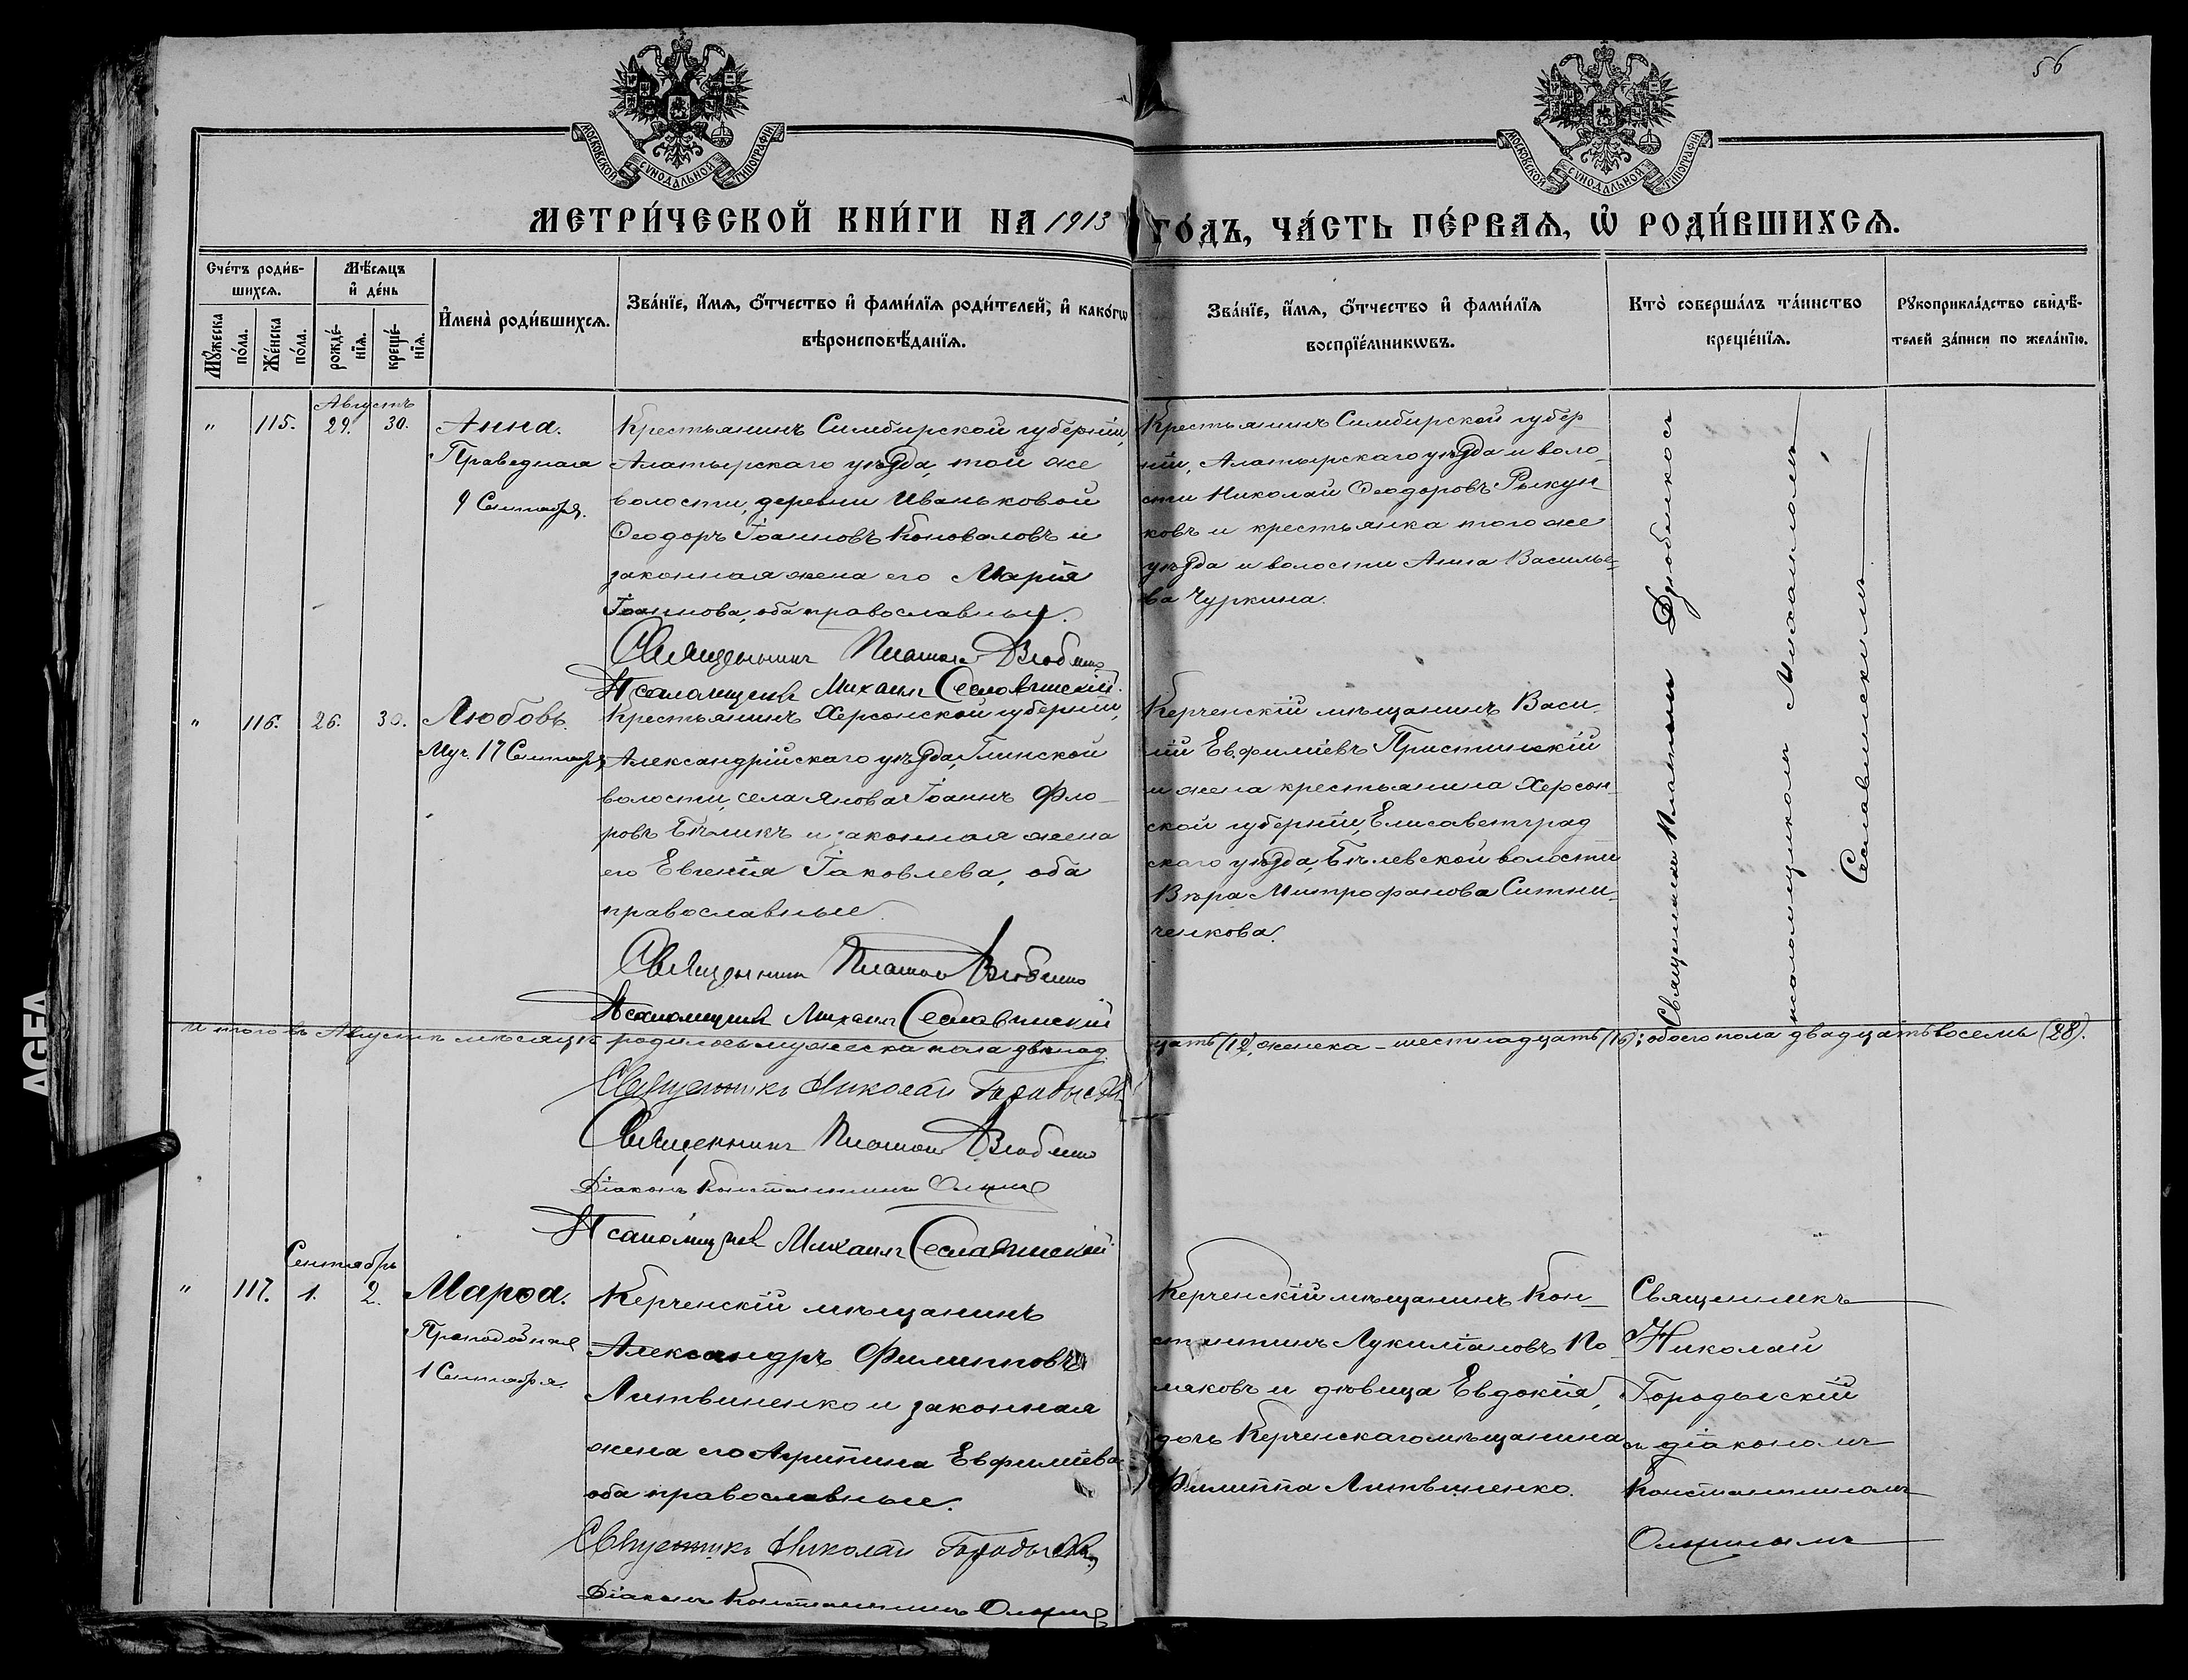 56
МОСКОВСКОЙ СѴНОДАЛЬНОЙ ТИПОГРАФІИ
МОСКОВСКОЙ СѴНОДАЛЬНОЙ ТИПОГРАФІИ
МЕТРИ́ЧЕСКОЙ КНИ́ГИ НА 1913 ГО́ДЪ, ЧА́СТЬ ПЕ́РВАѦ, Ѡ҆ РОДИ́ВШИХСѦ.
Сче́тъ роди́в-
шихсѧ.
Мꙋ́жеска по́ла.
Же́нска по́ла.
Мѣ́сѧцъ
и҆ де́нь
рожде́-
нїѧ.
креще́-
нїѧ.
И҆мена̀ роди́вшихсѧ.
Зва́нїе, и҆́мѧ, ѻ҆́тчество и҆ фами́лїѧ роди́телей, и҆ како́гѡ
вѣроисповѣ́данїѧ.
Зва́нїе, и҆́мѧ, ѻ҆́тчество и҆ фами́лїѧ
воспрїе́мникѡвъ.
Кто̀ соверша́лъ та́инство
креще́нїѧ.
Рꙋкоприкла́дство свидѣ́-
телей за́писи по жела́нїю.
Августъ
" 115. 29. 30.
Анна.
Праведная
9 Сентября.
Крестьянинъ Симбирской губерніи,
Алатырскаго уѣзда, той же
волости, деревни Иваньковой
Ѳеодоръ Іоанновъ Коноваловъ и
законная жена его Марія
Іоаннова, оба православные.
Священникъ Платонъ
Псаломщикъ Михаилъ Сеславинскій.
Крестьянинъ Симбирской губер-
ніи, Алатырскаго уѣзда и воло-
сти Николай Ѳеодоровъ Рыкун-
ковъ и крестьянка того же
уѣзда и волости Анна Василье-
ва Чуркина.
Священникъ Платонъ
псаломщикомъ Михаиломъ
Сеславинскимъ.
" 116. 26. 30.
Любовь.
Муч. 17 Сентября
Крестьянинъ Херсонской губерніи,
Александрійскаго уѣзда, Глинской
волости, села Янова Іоаннъ Фло-
ровъ Бѣликъ и законная жена
его Евгенія Іаковлева, оба
православные.
Священникъ Платонъ
Псаломщикъ Михаилъ Сеславинскій
Керченскій мѣщанинъ Васи-
лій Евфиміевъ Пристинскій
и жена крестьянина Херсон-
ской губерніи, Елисаветград
скаго уѣзда, Бѣлевской волости
Вѣра Митрофанова Ситни-
ченкова.
Итого въ Августѣ мѣсяцѣ родилось мужеска пола двѣнад
цать (12), женска – шестнадцать (16); обоего пола двадцать восемь (28).
Священникъ Николай Городыскій
Священникъ Платонъ
Діаконъ Константинъ
Псаломщикъ Михаилъ Сеславинскій
Сентябрь
" 117. 1. 2.
Марѳа.
Преподобная
1 Сентября.
Керченскій мѣщанинъ
Александръ Филипповъ
Литвиненко и законная
жена его Агрипина Евфиміева
оба православные.
Священникъ Николай Городыскій
Діаконъ Константинъ
Керченскій мѣщанинъ Кон-
стантинъ Лукиліановъ По
ляковъ и дѣвица Евдокія,
дочь Керченскаго мѣщанина
Филиппа Литвиненко.
Священникъ
Николай
Городыскій
съ діакономъ
Константиномъ
AGFA